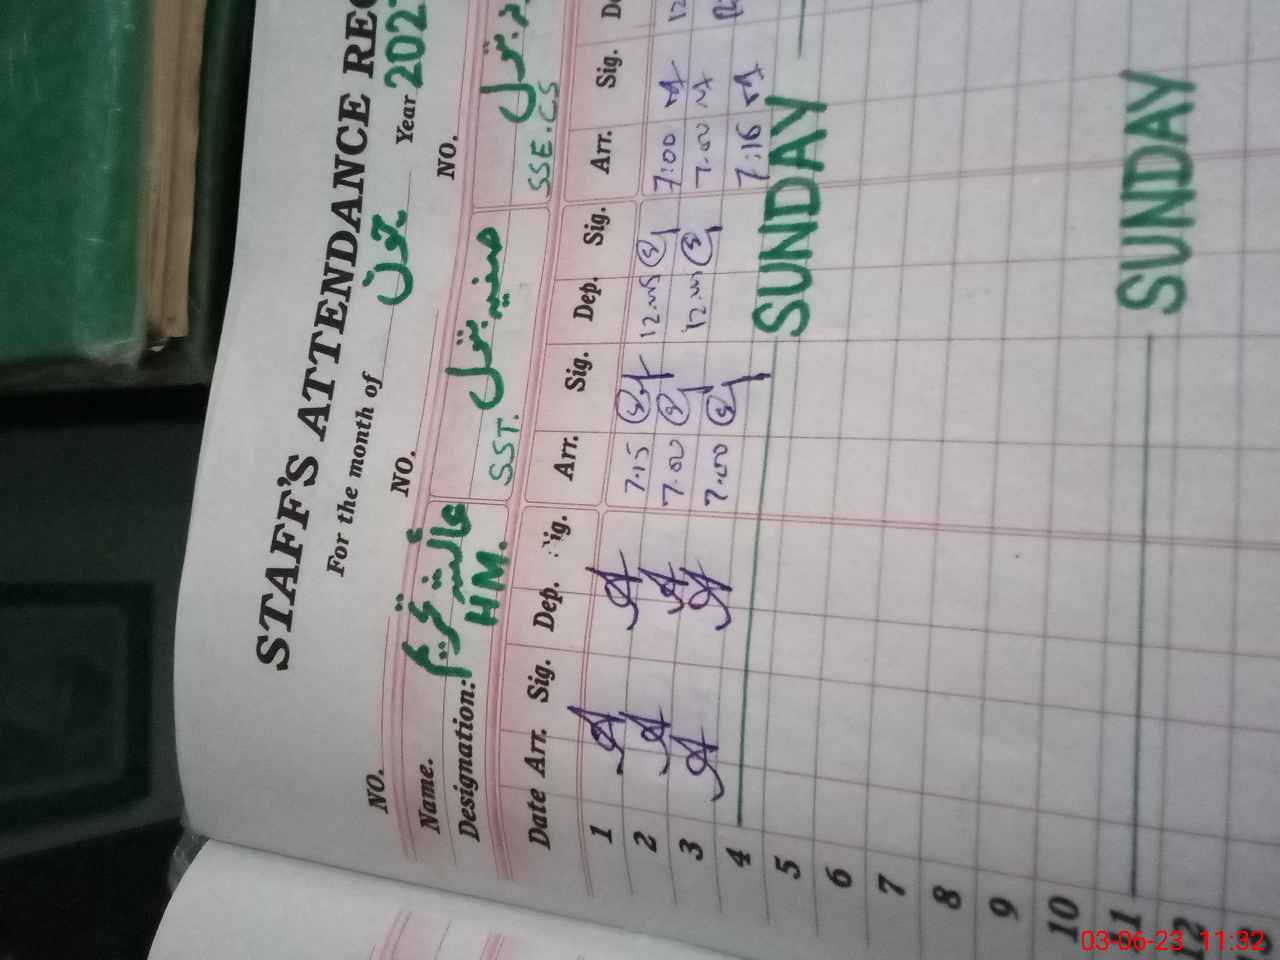 STAFF'S ATTENDANCE
For the month of جون Year 202
NO. NO. NO.
Name. عائشہ کریم صفیہ بتول بتول
Designation: HM. SST. SSE.CS
Date Arr. Sig. Dep. Sig. Arr. Sig. Dep. Sig. Arr. Sig.
1 7.15 12.45 7:00
2 7.00 12.45 7.00
3 7.00 7:16
4 SUNDAY
5
6
7
8
9
10
11 SUNDAY
12
03-06-23 11:32